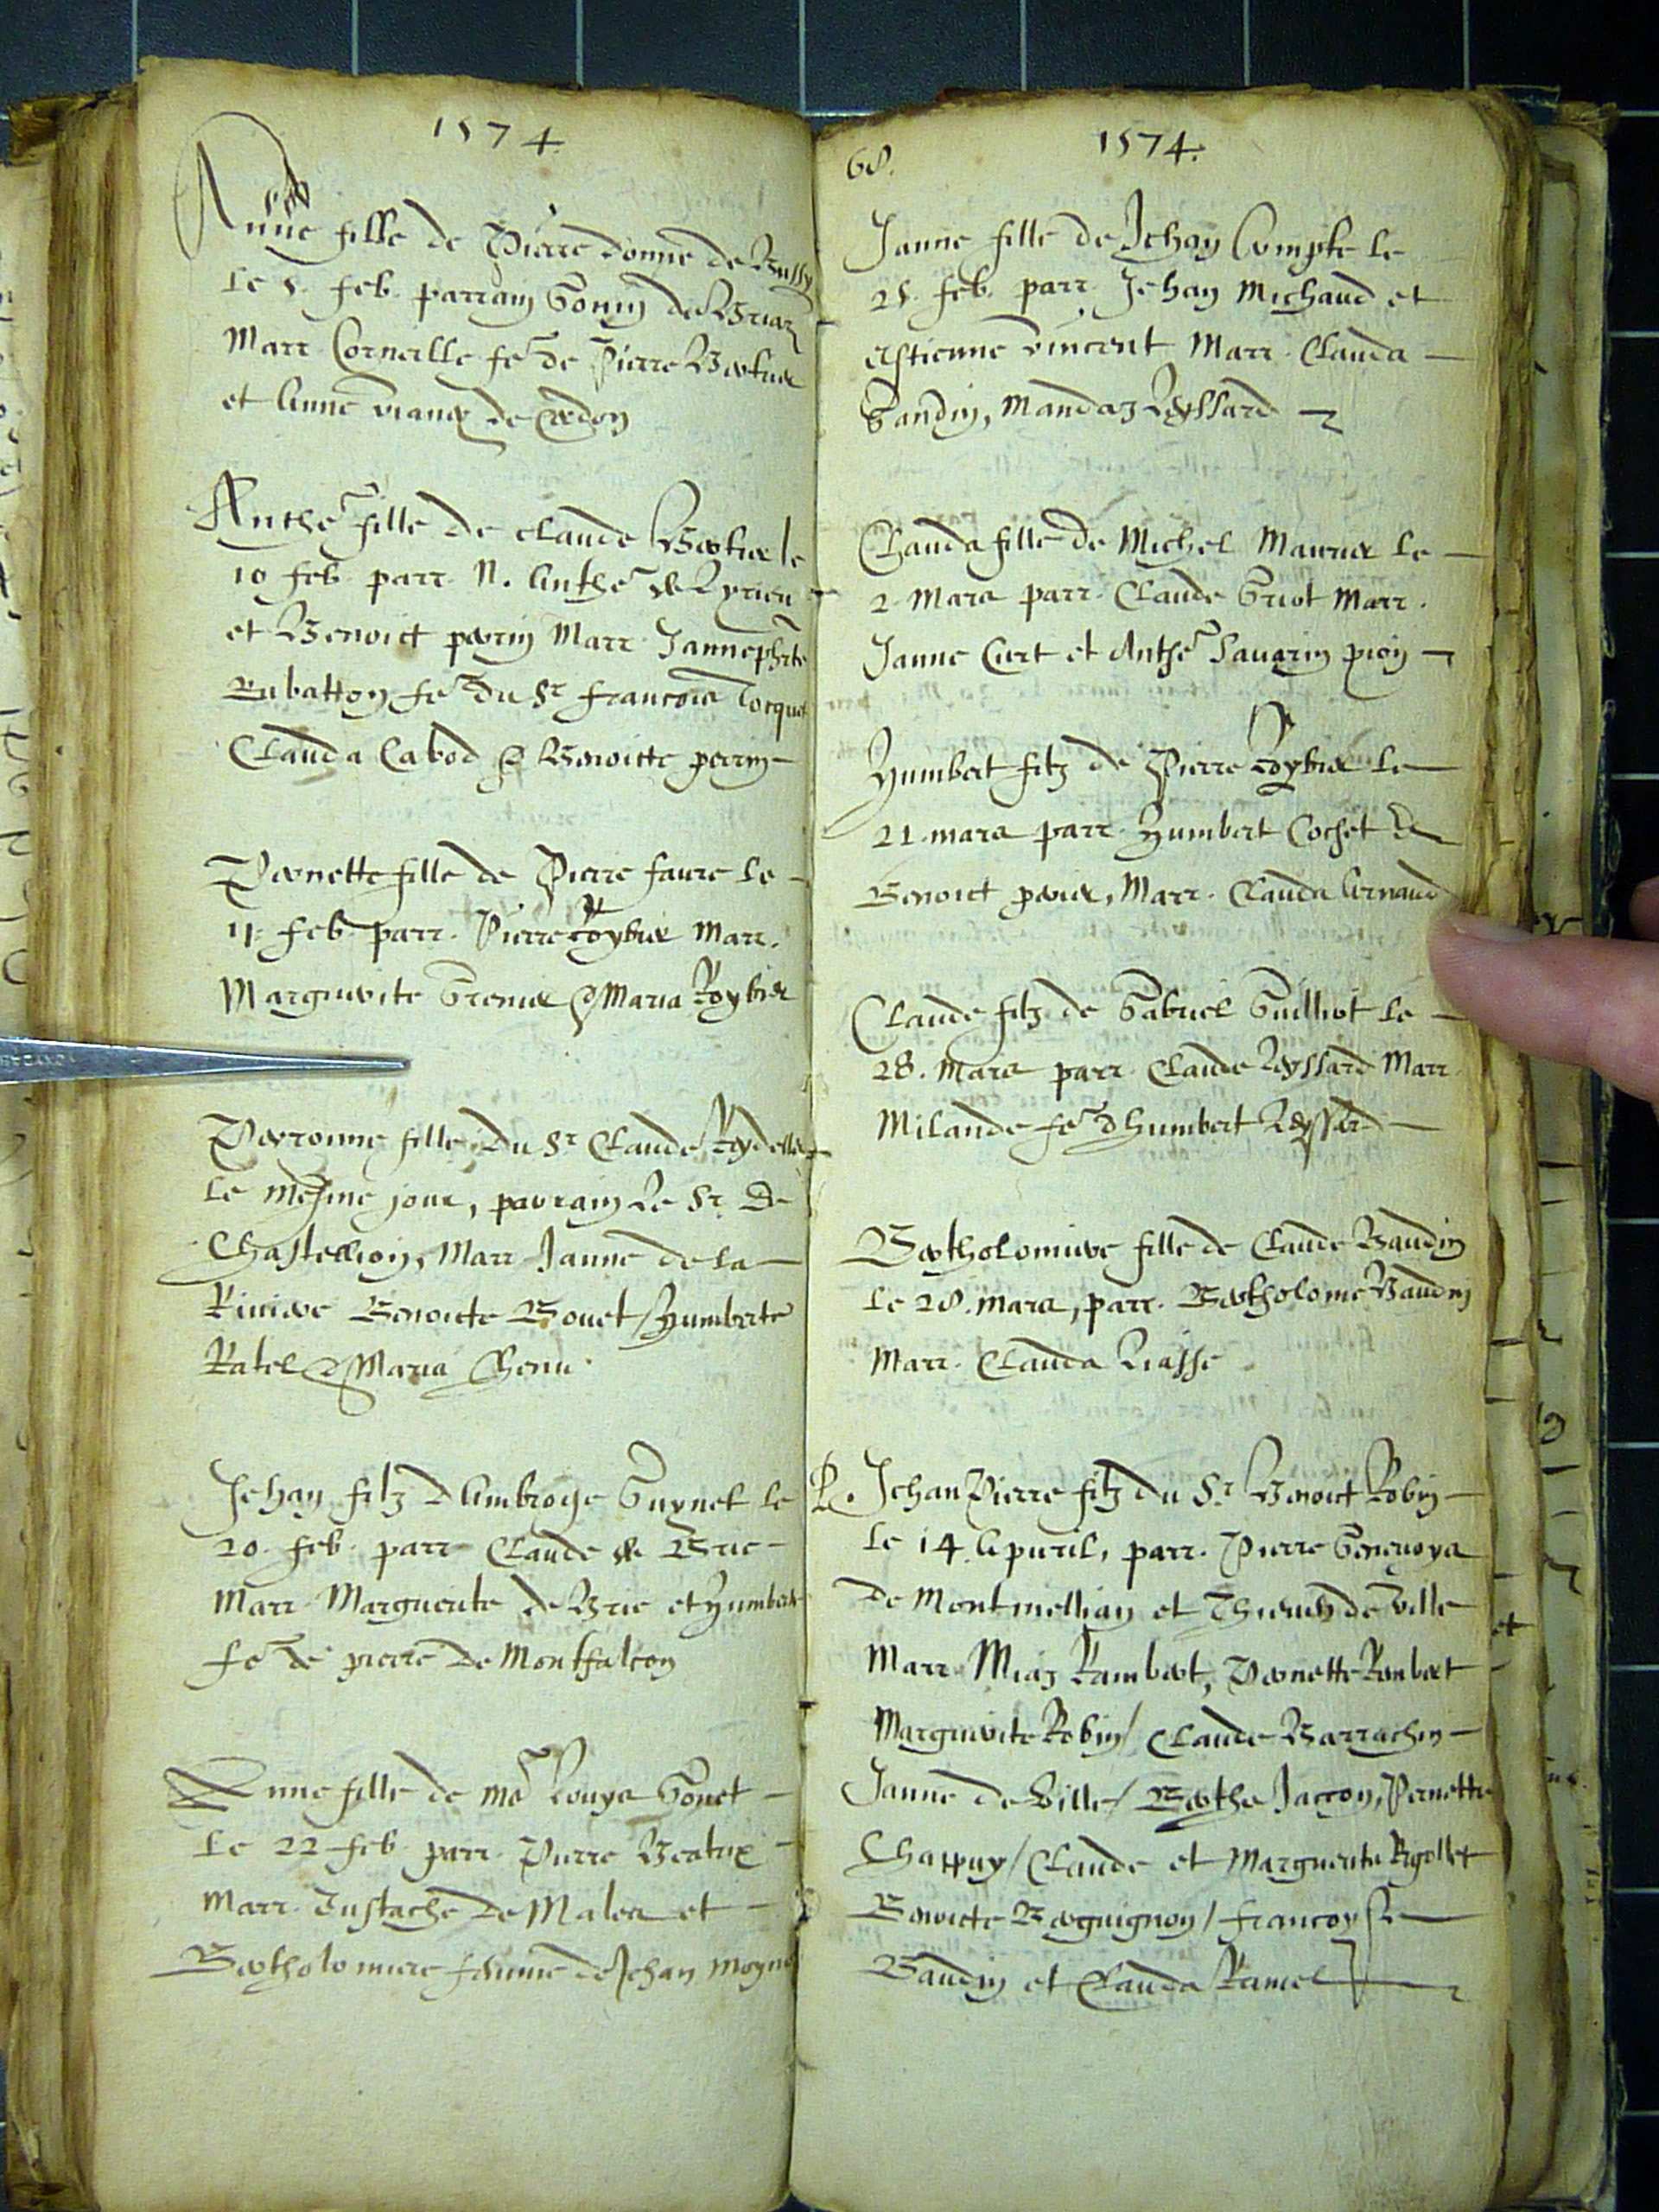 1574.
Anne fille de Pierre donne de Bussy
le 5. feb. parrain Gonin de Briaz
Marr. Corneille fe de Pierre Bertier
et Anne de Cerdon
Anthe fille de Claude Bertier le
10 feb. parr. N. Anthe de Lyrieu
et Benoict perrin Marr. Jannephrte
Rubatton fe du Sr francois Locquet
Clauda Cabod & Benoicte perrin
Pernette fille de Pierre faure le
11. feb. parr. Pierre Roybier Marr.
Marguerite Grenier & Maria Roybier
Perronne fille du Sr Claude Reydellet
le mesme jour, parrain Le Sr De
Chastellion, Marr. Janne de la
Riviere Benoicte Bouet / Humberte
Ratel & Maria Chenu.
Jehan filz d'Ambroyse Guynet le
20. feb. parr. Claude de Brie
Marr. Marguerite de Brie et Humberte
fe de pierre de Montfalcon
Anne fille de me Louys Gonet
Le 22 feb. parr. Pierre Beatrix
Marr. Eustache De Males et
Bertholomiere femme de Jehan Moyne
68.
1574.
Janne fille de Jehan Compte le
25. feb. parr. Jehan Michaud et
Estienne vincent Marr. Clauda
Gandin, Mandaz Reyssard
Clauda fille de Michel Maurier le
2. Mars parr. Claude Griot Marr.
Janne Curt et Anthe Sauarin pion
Humbert filz de Pierre Roybier le
21. mars parr. Humbert Cochet &
Benoict perier, Marr. Clauda Arnaud
Claude filz de Gabriel Guilliot le
28. Mars parr. Claude Reyssard Marr.
Milande fe d'humbert Reyssard
Bertholomiere fille de Claude Baudin
le 28. mars, parr. Bertholome Baudin
Marr. Clauda Liasse
R. Jehan Pierre filz du Sr Benoict Robin
le 14. Apuril, parr. Pierre Geneuoys
de Montmellian et de Ville
Marr. Miaz Rambert, Pernette Rambert
Marguerite Robin / Claude Barrachin
Janne de Ville / Berthe Jacron, Pernette
Chappuy / Claude et Marguerite Rigollet
Benoicte Berguignon / francoyse
Baudin et Clauda Ramel